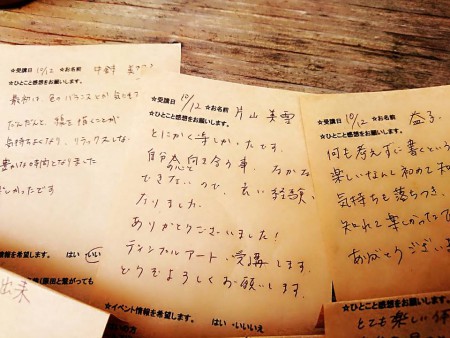 ★受講日 10/12 ★お名前
★ひとこと感想をお願いします。
最初は色のバランスとか気にして
だんだんと 線を描くことが
気持ちよくなり、リラックスした
豊かな時間となりました
楽しかったです
情報を希望します。 はい・いいえ
★受講日 10/12 ★お名前 片山 美雪
★ひとこと感想をお願いします。
とにかく楽しかったです。
自分の心と向き合う事、なかなか
できないので、良い経験に
なりました。
ありがとうございました!
ディンプルアート の受講します。
どうぞよろしくお願いします。
★イベント情報を希望します。 はい・いいえ
★受講日 10/12 ★お名前 益子
★ひとこと感想をお願いします。
何も考えずに書くという
楽しいなんて初めて知
気持ちも落ちつき、
知れて楽しかったで
ありがとうござい
出来
★ひとこと感想をお願いします。
とても楽しい